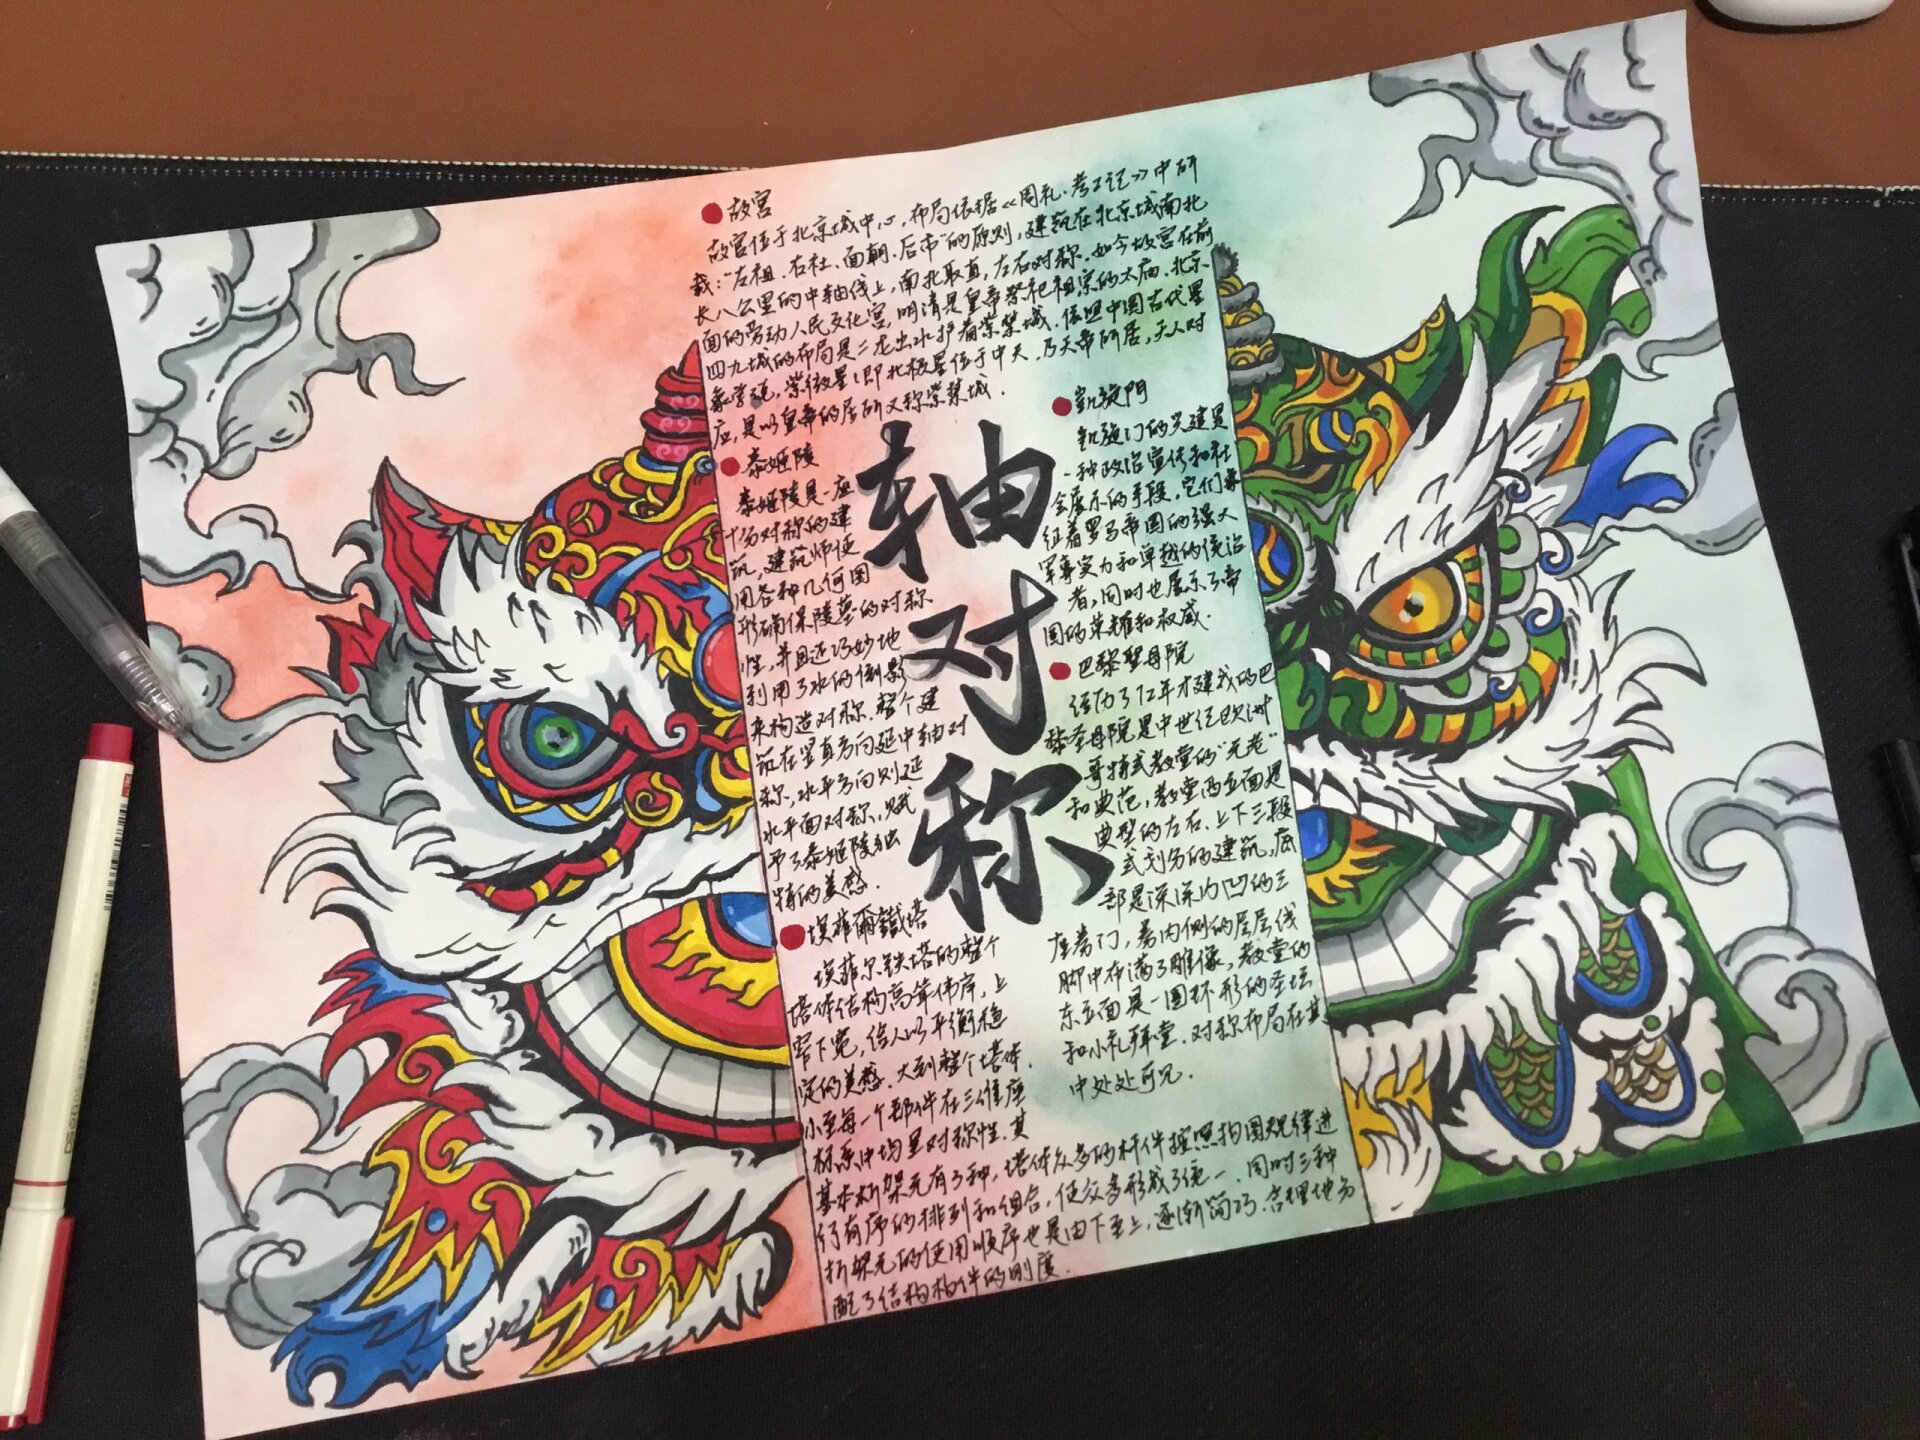 故宫
故宫位于北京城中心,布局依据《周礼·考工记》中研
载:"左祖、右社、面朝、后市"的原则,建筑在北京城南北
长八公里的中轴线上,南北取直,左右对称.如今故宫在前
面的劳动人民文化宫,明清是皇帝祭祀祖宗的太庙.北京
四九城的布局是二龙出水护着紫禁城.依照中国古代星
象学说,紫微星(即北极星位于中天,乃天帝所居,天人对
应,是以皇帝的居所又称紫禁城.
泰姬陵
泰姬陵是一座
十分对称的建
筑,建筑师使
用各种几何图
形确保陵墓的对称
性,并且还巧妙地
利用了水的倒影
来构造对称.整个建
筑在竖直方向延中轴对
称,水平方向则延
水平面对称,赋
予了泰姬陵独
特的美感.
埃菲爾鐵塔
埃菲尔铁塔的整个
塔体结构高耸伟岸,上
窄下宽,给人以平衡稳
定的美感.大到整个塔体.
小至每一个部件在三维座
标系中均呈对称性.其
基本桁架元有3种,塔体众多的杆件按照构图规律进
行有序的排列和组合,使众多形成了统一.同时三种
桁架元的使用顺序也是由下至上,逐渐简巧.合理地分
配了结构构件的刚度.
轴
对
称
凱旋門
凯旋门的兴建是
一种政治宣传和社
会展示的手段,它们象
征着罗马帝国的强大
军事实力和卓越的统治
者,同时也展示了帝
国的荣耀和权威.
巴黎聖母院
经历了72年才建成的巴
黎圣母院是中世纪欧洲
哥特式教堂的"元老"
和典范,教堂西立面是
典型的左右、上下三段
式划分的建筑,底
部是深深内凹的三
座券门,券内侧的层层线
脚中布满了雕像,教堂的
东立面是一圆环形的圣坛
和小礼拜堂.对称布局在其
中处处可见.